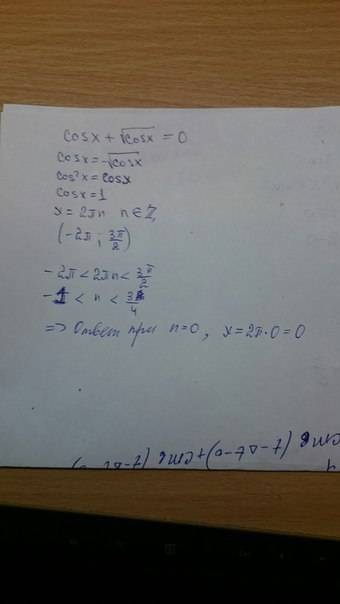 cosx + √cosx = 0
cosx = -√cosx
cos²x = cosx
cosx = 1
x = 2πn n ∈ Z,
(-2π ; 3π/2)
-2π < 2πn < 3π/2
-1 < n < 3/4
=> Ответ при n=0, x = 2π·0 = 0